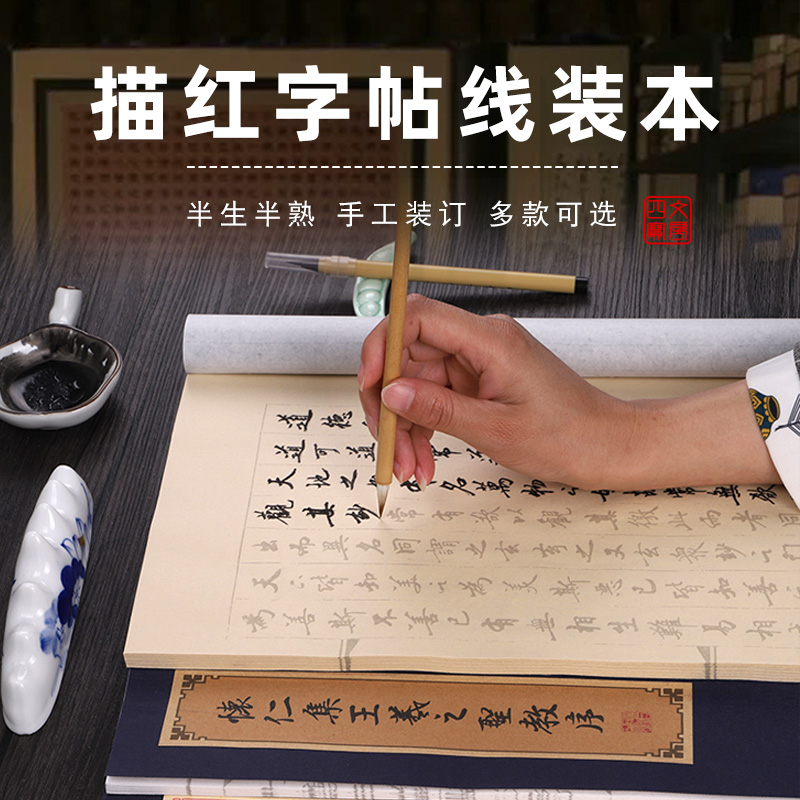 描红字帖线装本
半生半熟 手工装订 多款可选
文房四寶
道德
道可道
天地之 名萬物 常無欲
觀其妙常有欲以觀其徼此兩者同
出而異名同謂之玄玄之又玄衆妙之門
天下皆知美之為美斯惡已皆知善
為善斯不善已有無相生難易相
懷仁集王羲之聖教序